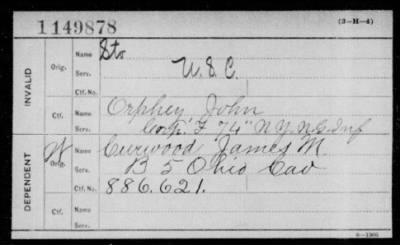 1149878
(3-H-4)
INVALID
Orig.
Name Sto
Serv. U.S.C.
Ctf. No.
Ctf.
Name Orphey John
Serv. Corp. F 74" N.Y.N.G. Inf
DEPENDENT
W
Orig.
Name Curwood James M
Serv. B 5 Ohio Cav
Ctf. No. 886.621.
Ctf.
Name
Serv.
6-1366